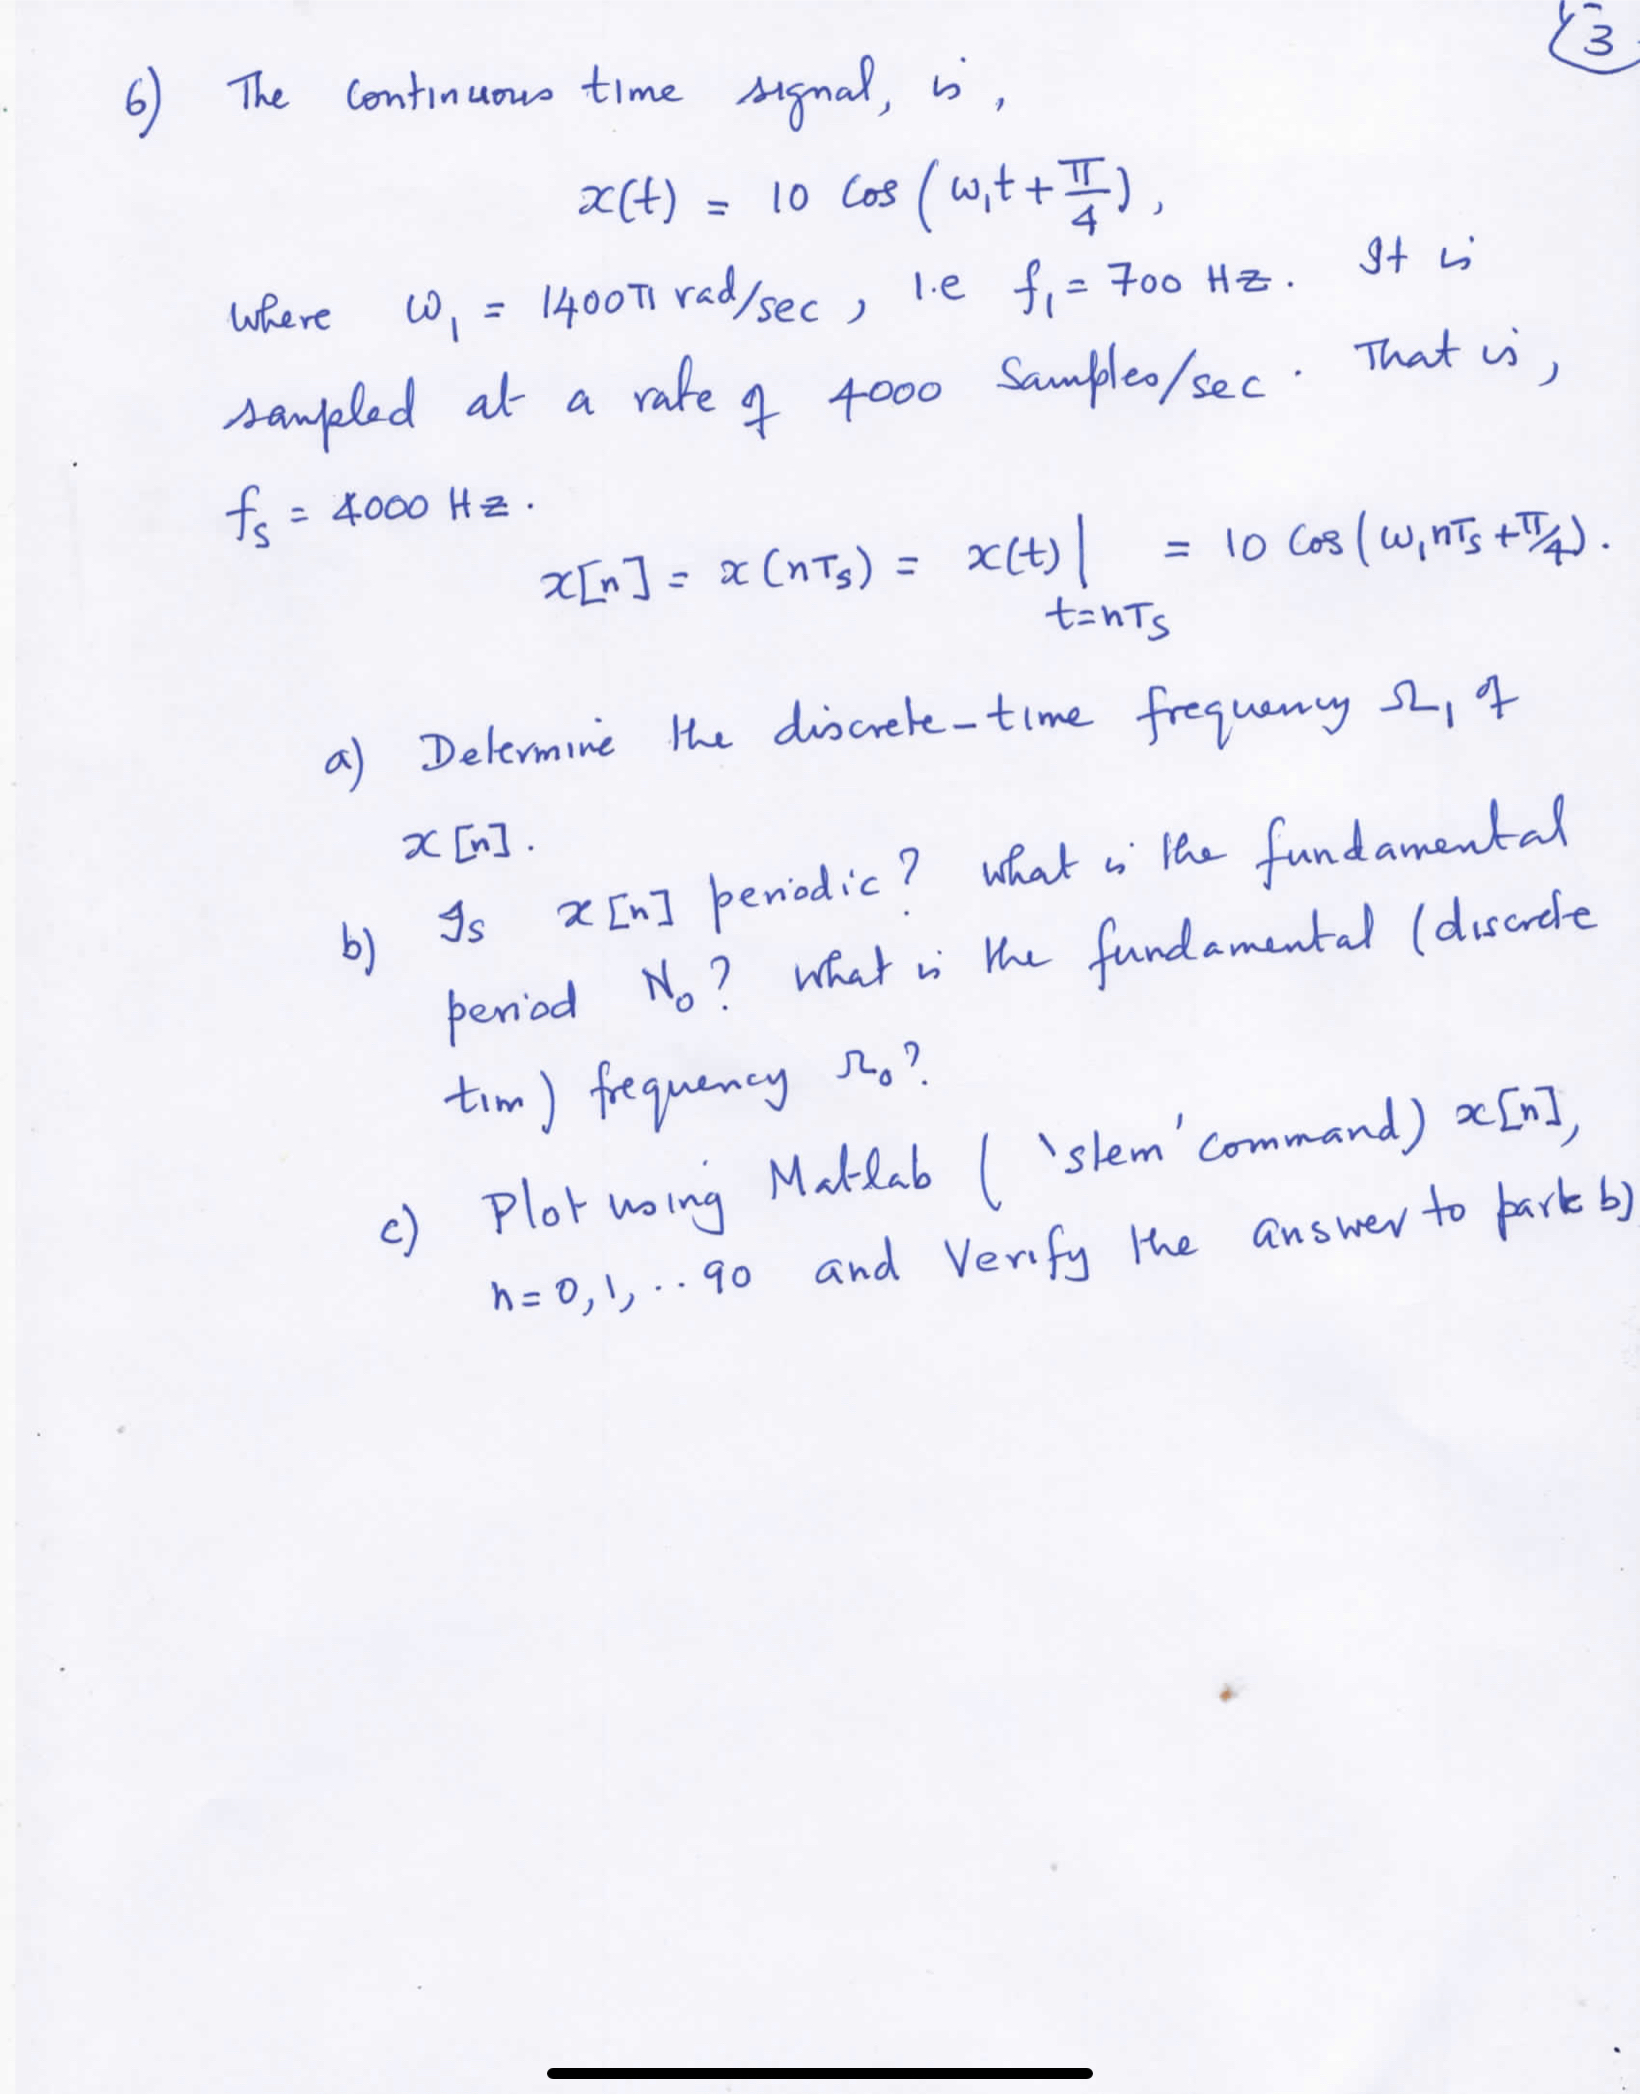 3
6) The continuous time signal, is,
x(t) = 10 cos (ω₁t + π/4),
where ω₁ = 1400π rad/sec, i.e f₁ = 700 Hz. It is
sampled at a rate of 4000 samples/sec. That is,
fs = 4000 Hz.
x[n] = x(nTs) = x(t)| = 10 cos(ω₁nTs + π/4).
t=nTs
a) Determine the discrete-time frequency Ω₁ of
x[n].
b) Is x[n] periodic? what is the fundamental
period N₀? what is the fundamental (discrete
tim) frequency Ω₀?
c) Plot using Matlab ('stem' command) x[n],
n=0,1,..90 and Verify the answer to part b)